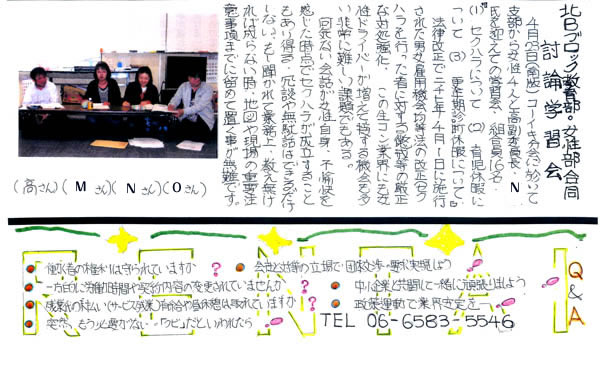 北ブロック教育部・女性部合同
討論学習会
4月23日コーイキ会館において
支部から女性4人と高副委員長・N
氏を迎えての学習会、組合員16名・
(1)セクハラについて (2)育児休暇に
ついて (3)更年期診断休暇について。
法律改正で年4月1日に施行
された男女雇用機会均等法の改正(セク
ハラを行った者に対する懲戒等の厳正
な対処強化、この生コン業界にも女
性ドライバーが増えて接する機会も多
い、非常に難しい課題でもある。
何気ない会話が女性自身、不愉快を
感じた時点でセクハラが成立すること
もあり得る、冗談や無駄話はできるだけ
しない、もし聞かれて業務上、教え無け
れば成らない時、地図や現場の重要注
意事項までに留めて置く事が無難です。
(高さん)(Mさん)(Nさん)(Oさん)
Q&A
働く者の権利は守られていますか?
会社と対等の立場で団体交渉・要求実現しよう
一方的に労働時間や契約内容の変更されていませんか?
中小企業と共闘して一緒に頑張りましょう
残業代の未払い(サービス残業)有給や昼休憩は取れていますか?
政策運動で業界安定を
突然、もう必要がない…「クビ」だといわれたら
TEL 06-6583-5546